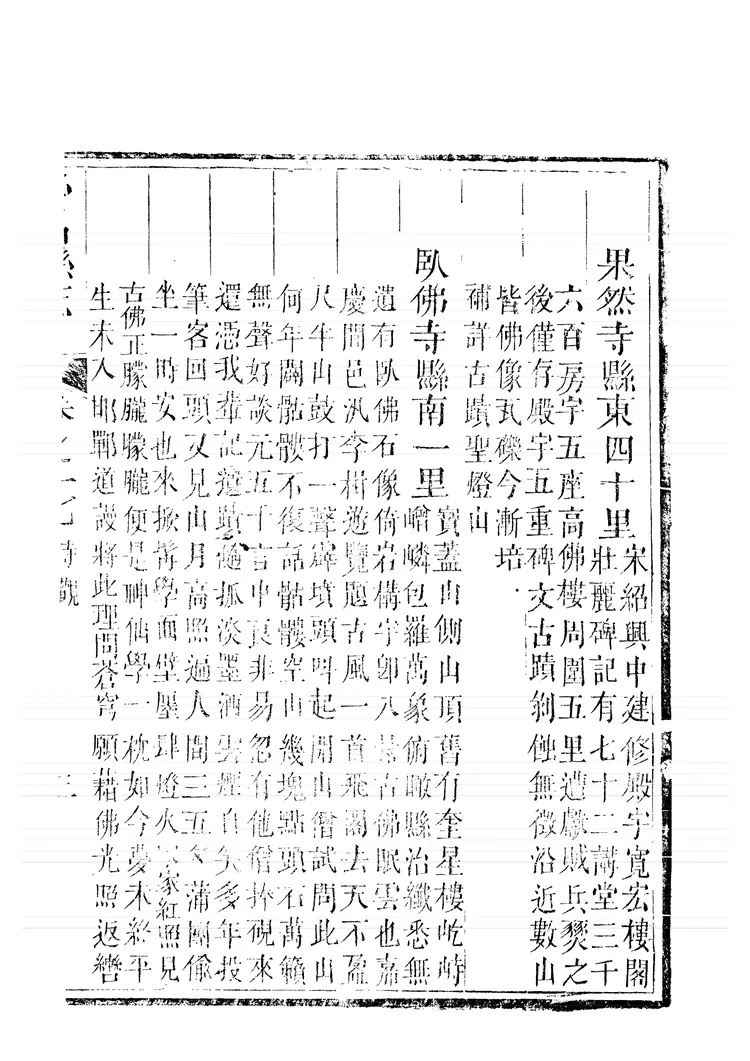 果然寺縣東四十里
宋紹興中建修殿宇寬宏樓閣
壯麗碑記有七十二講堂三千
六百房宇五座高佛樓周圍五里遭獻賊兵燹之
後僅存殿宇五重碑文古蹟剝蝕無徵沿近數山
皆佛像瓦礫今漸培
補詳古蹟聖燈山
臥佛寺縣南一里
寶蓋山側山頂舊有奎星樓屹峙
嶒嶙包羅萬象俯瞰縣治纖悉無
遺有臥佛石像倚岩構宇卽八景古佛眠雲也嘉
慶間邑汎李楫遊覽題古風一首飛閣去天不盈
尺牛山鼓打一聲霹墳頭叫起開山僧試問此山
何年闢骷髏不復話骷髏空山幾塊點頭石萬籟
無聲好談元五千言中良非易忽有他僧捧硯來
還憑我輩記遺蹟隨抓淡墨洒雲煙自笑多年投
筆客回頭又見山月高照遍人間三五夕蒲團偷
坐一時安也來掀學面壁肆燈火家紅照見
古佛正朦朧朦朧便是神仙學一枕如今夢未終平
生未入邯鄲道謾將此理問蒼穹願藉佛光照返轡
縣志
卷之
寺觀
三